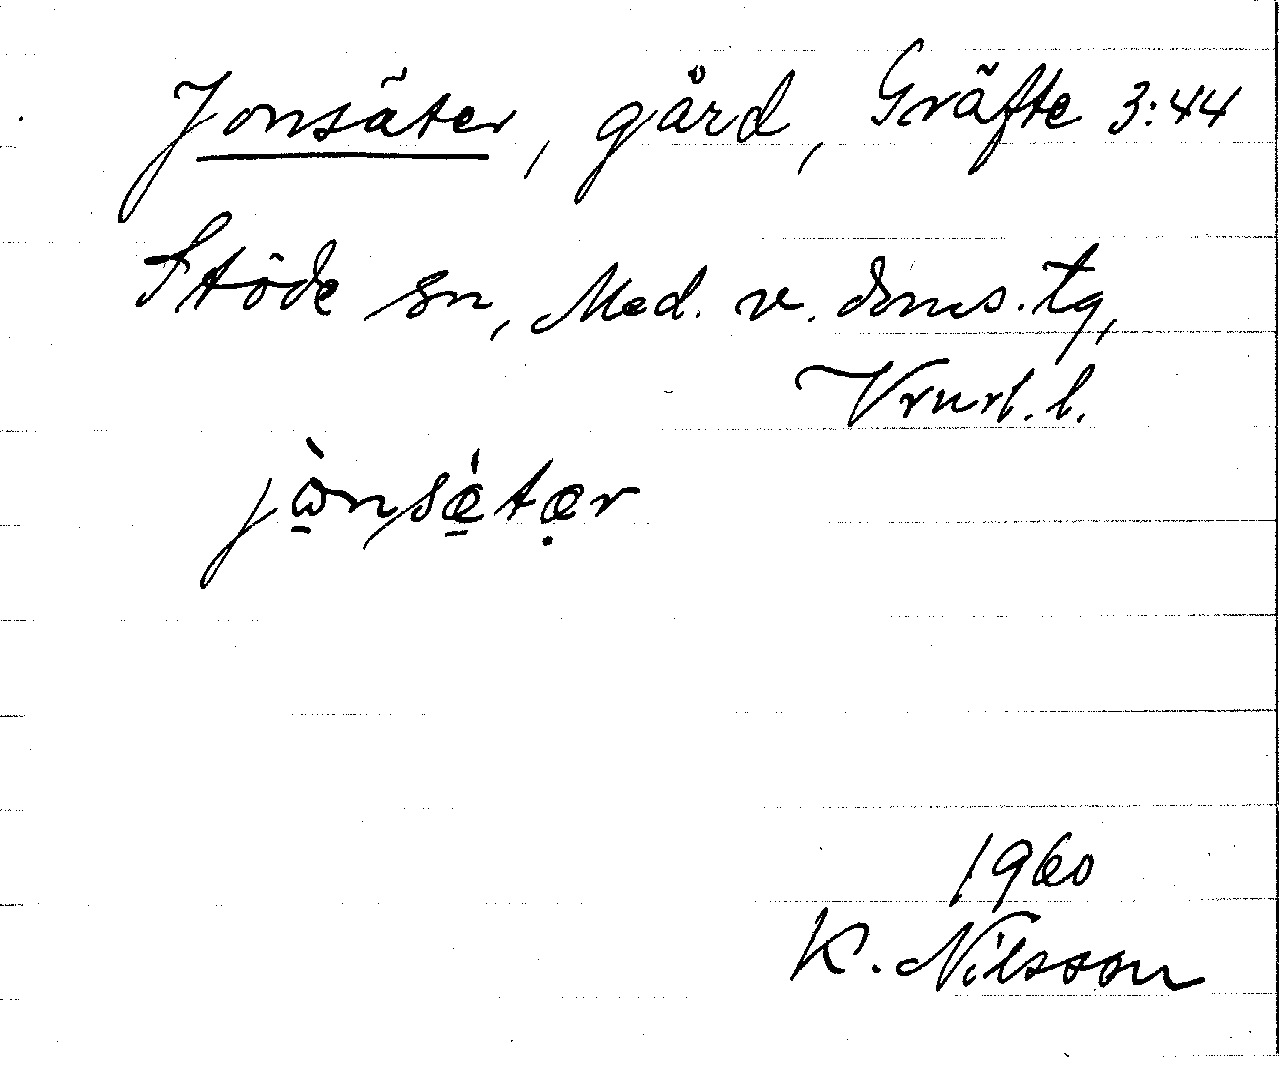 Jonsäter, gård, Gräfte 3:44
Stöde sn, Med. v. doms. tg,
Vrnrl. l.
jɷ̀nsǽtær
1960
K. Nilsson